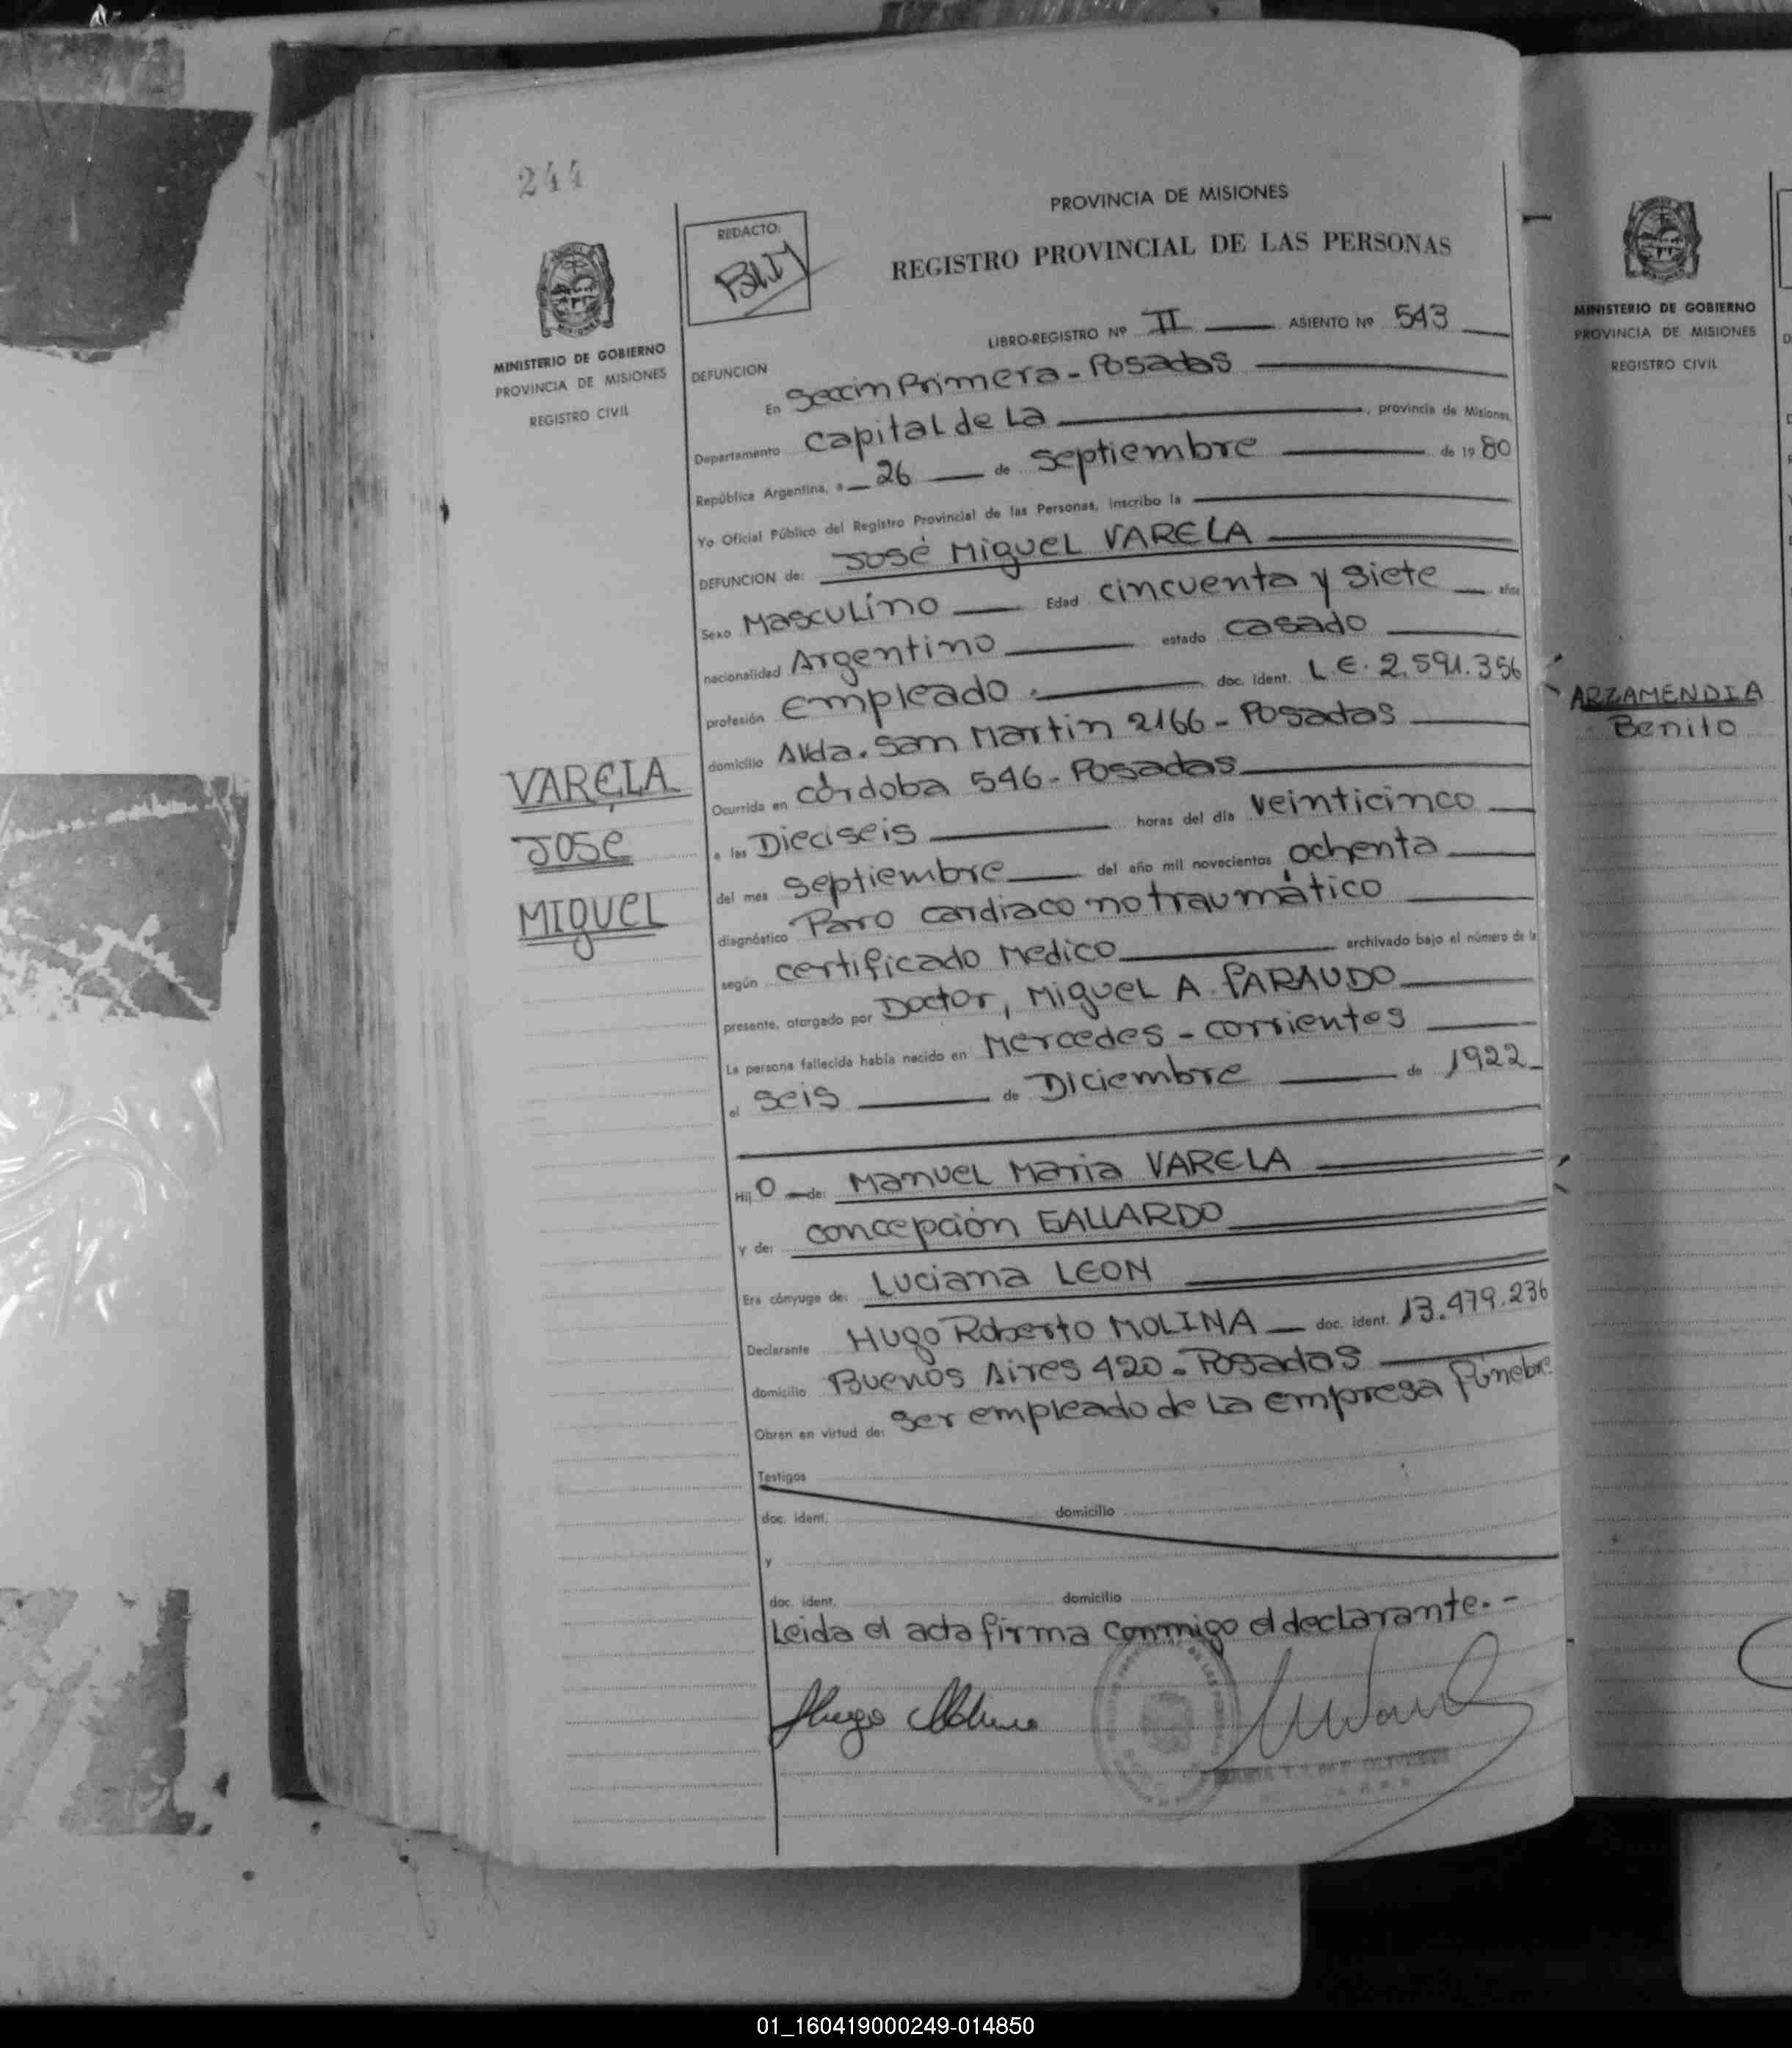 244
MINISTERIO DE GOBIERNO
PROVINCIA DE MISIONES
REGISTRO CIVIL
VARELA
JOSE
MIGUEL
REDACTO:
PROVINCIA DE MISIONES
REGISTRO PROVINCIAL DE LAS PERSONAS
LIBRO-REGISTRO Nº II ASIENTO Nº 543
DEFUNCION
En Seccin Primera - Posadas
Departamento Capital de La, provincia de Misiones,
República Argentina, a 26 de Septiembre de 1980
Yo Oficial Público del Registro Provincial de las Personas, inscribo la
DEFUNCION de: JOSÉ MIGUEL VARELA
Sexo Masculino Edad cincuenta y siete años
nacionalidad Argentino estado casado
profesión empleado. doc. ident. L.E. 2.591.356
domicilio Avda. San Martin 2166 - Posadas
Ocurrida en córdoba 546 - Posadas
a las Dieciseis horas del día veinticinco
del mes septiembre del año mil novecientos ochenta
diagnóstico Paro cardiaco no traumático
según certificado Medico archivado bajo el número de la
presente, otorgado por Doctor, Miguel A. PARAUDO
La persona fallecida había nacido en Mercedes - corrientes
el seis de Diciembre de 1922
Hijo de: Manuel Maria VARELA
y de: concepción GALLARDO
Era cónyuge de: Luciana LEON
Declarante Hugo Roberto MOLINA doc. ident. 13.479.236
domicilio Buenos Aires 420 - Posadas
Obran en virtud de: ser empleado de la empresa fúnebre
Testigos
doc. ident. domicilio
y
doc. ident. domicilio
Leida el acta firma conmigo el declarante. -
Hugo Molina
MINISTERIO DE GOBIERNO
PROVINCIA DE MISIONES
REGISTRO CIVIL
ARZAMENDIA
Benito
01_160419000249-014850